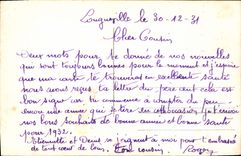 Longueville le 30-12-31
Cher Cousin
Deux mots pour te donner de nos nouvelles
qui sont toujours bonnes pour le moment et j'espère
que ma carte te trouvera en excellente santé
nous avons reçu ta lettre du
bon signe car tu commence a compter du
une année qui à
nos bons souhaits de bonne année et bonne santé
pour 1932.
Etiennette et Denis se joignent à moi pour t'embrasser
de tout cœur de loin. Ton cousin. Roger